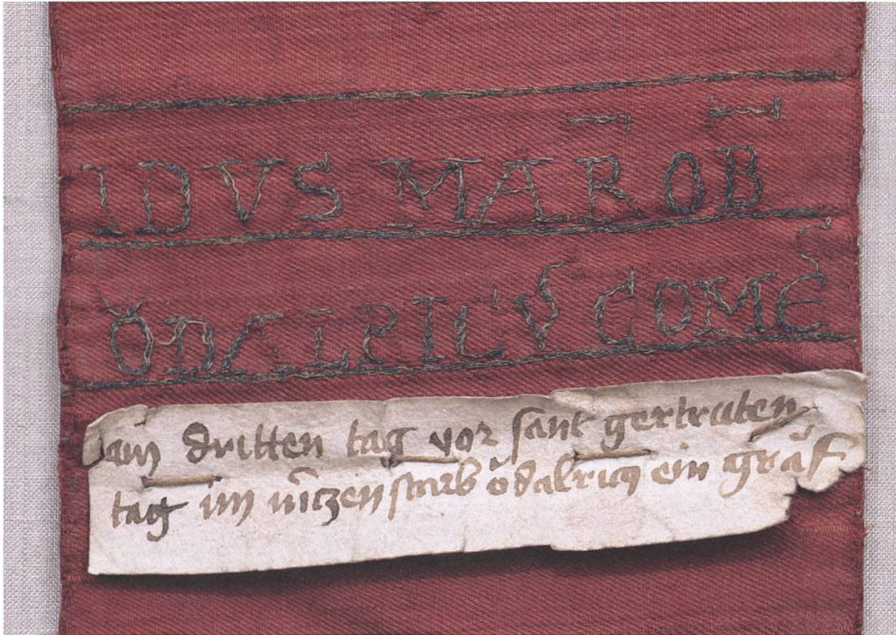 IDVS MAR̅ OB̅
ŎDALRICVS COMES
am dritten tag vor sant gertruten
tag im mͤrczen starb ŏdalricus ein graͤf